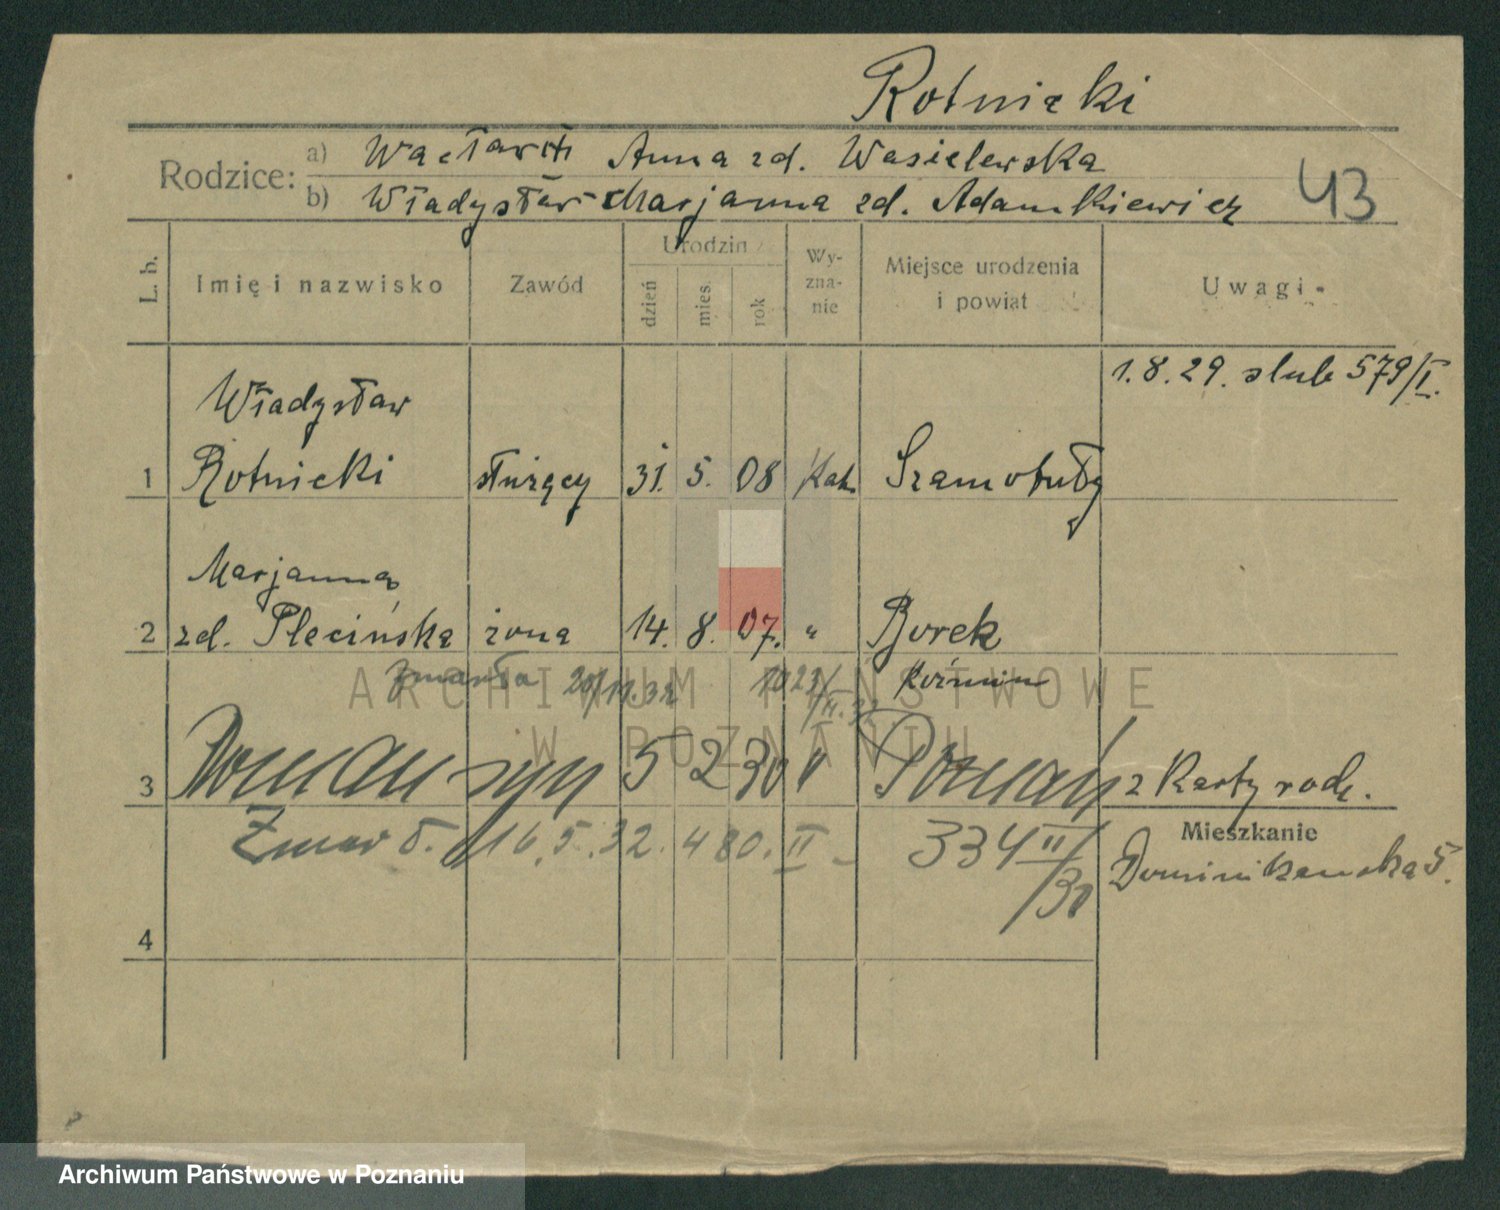 Rotnicki
Rodzice: a) Wacław Anna zd. Wasielewska
b) Władysław - Marjanna zd. Adamkiewicz
43
L. b. Imię i nazwisko Zawód Urodzin dzień mies. rok Wy-zna-nie Miejsce urodzenia i powiat Uwagi
1. 8. 29. slub 579/I.
Władysław
1 Rotnicki służący 31. 5. 08 Kat. Szamotuły
Marjanna
2 zd. Plecińska żona 14. 8. 07. " Borek
zmarła 20/11.32 1023/II.32 Koźmin
ARCHIWUM PAŃSTWOWE
W POZNANIU
3 Roman syn 5 2 30 " Poznań z Karty rodz.
Mieszkanie
Zmar ł. 16.5.32. 480. II - 334 II/30 Dominikańska 5.
4
Archiwum Państwowe w Poznaniu